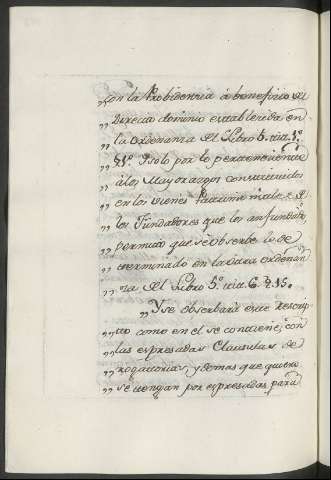 „con la Probidencia à beneficio del
„Directo dominio establecida en
„la Ordenanza del Libro 5. titt. 1º
„71º y solo por lo perteneciente
„à los Mayorazgos constituidos
„en los vienes Patrimoniales de
„los Fundadores que los an fundado,
„permito que se observe lo de
„terminado en la citada ordenan
„za del Libro 5º titt. 6. 15.
„Y se observará este Rescrip
„to como en el se contiene, con
„las expresadas Clausulas De
„rogatorias, y demas que quiero
„se tengan por expresadas para